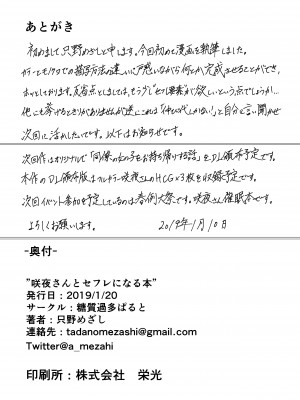 あとがき
初めまして、只野めざしと申します。今回初めて漫画を執筆しました。
カラーとモノクロでの描写方法の違いに戸惑いながら何とか完成させることができ、
ほっとしております。反省点としましては、もう少しセリフ要素が欲しいという点でしょうか…
他にも挙げるときりがありませんが逆にこれは「伸びしろしかない!」と自分に言い聞かせ
次回に活かしたいです。以下はお知らせです。
次回作はオリジナルで「同僚の女の子をお持ち帰りする話」をDL頒布予定です。
本作のDL頒布版はフルカラー咲夜さんのHCG×3枚を収録予定です。
次回イベント参加を予定しているのは春例大祭です。咲夜さん催眠本です。
よろしくお願いします。 2019年1月10日
-奥付-
”咲夜さんとセフレになる本”
発行日：2019/1/20
サークル：糖質過多ぱると
著者：只野めざし
連絡先：tadanomezashi@gmail.com
Twitter@a_mezahi
印刷所：株式会社 栄光